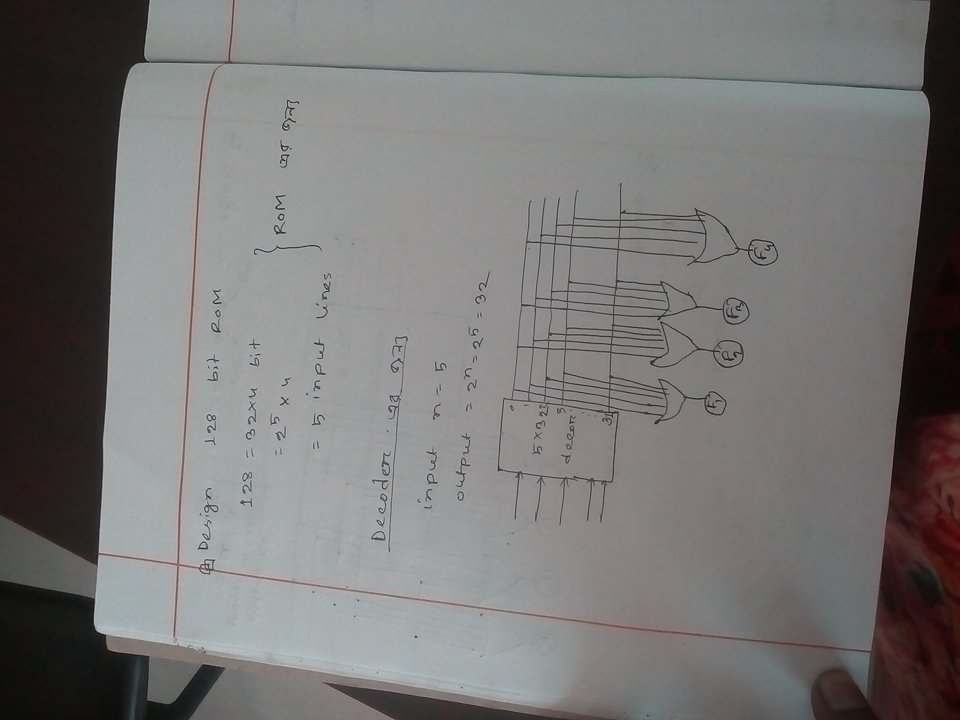 Design 128 bit ROM
128 = 32×4 bit
= 2⁵ × 4
= 5 input lines
ROM এর জন্য
Decoder এর জন্য
input n = 5
output = 2ⁿ = 2⁵ = 32
0
1
5×32 2
3
decor
31
F1
F2
F3
F4